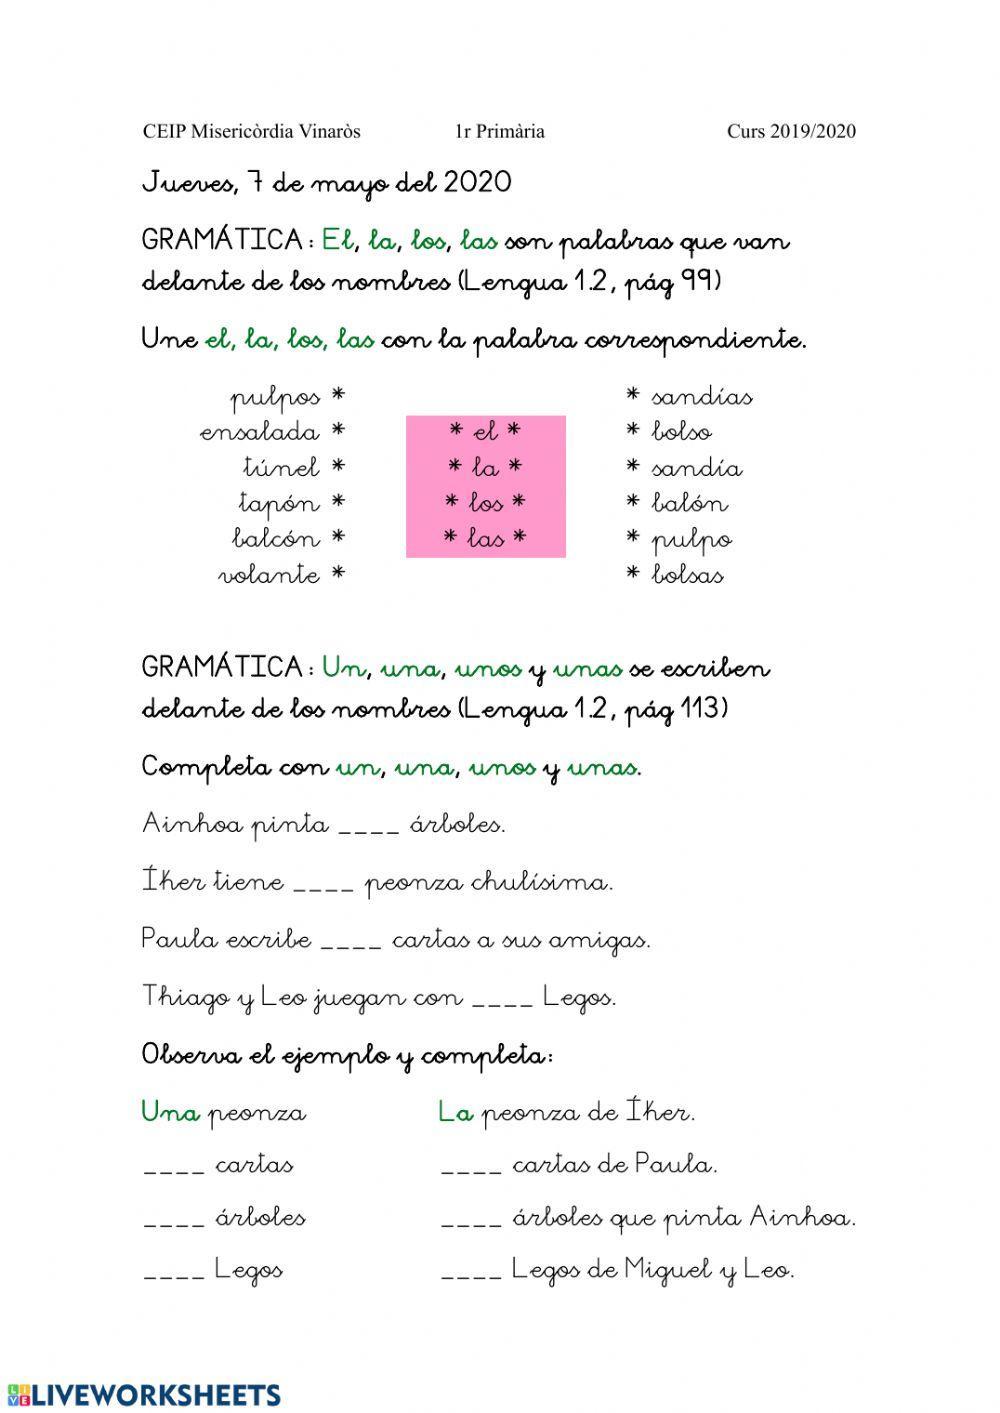 CEIP Misericòrdia Vinaròs 1r Primària Curs 2019/2020
Jueves, 7 de mayo del 2020
GRAMÁTICA: El, la, los, las son palabras que van
delante de los nombres (Lengua 1.2, pág 99)
Une el, la, los, las con la palabra correspondiente.
pulpos * * sandías
ensalada * * el * * bolso
túnel * * la * * sandía
tapón * * los * * balón
balcón * * las * * pulpo
volante * * bolsas
GRAMÁTICA: Un, una, unos y unas se escriben
delante de los nombres (Lengua 1.2, pág 113)
Completa con un, una, unos y unas.
Ainhoa pinta ____ árboles.
Íker tiene ____ peonza chulísima.
Paula escribe ____ cartas a sus amigas.
Thiago y Leo juegan con ____ Legos.
Observa el ejemplo y completa:
Una peonza La peonza de Íker.
____ cartas ____ cartas de Paula.
____ árboles ____ árboles que pinta Ainhoa.
____ Legos ____ Legos de Miguel y Leo.
LIVE LIVEWORKSHEETS